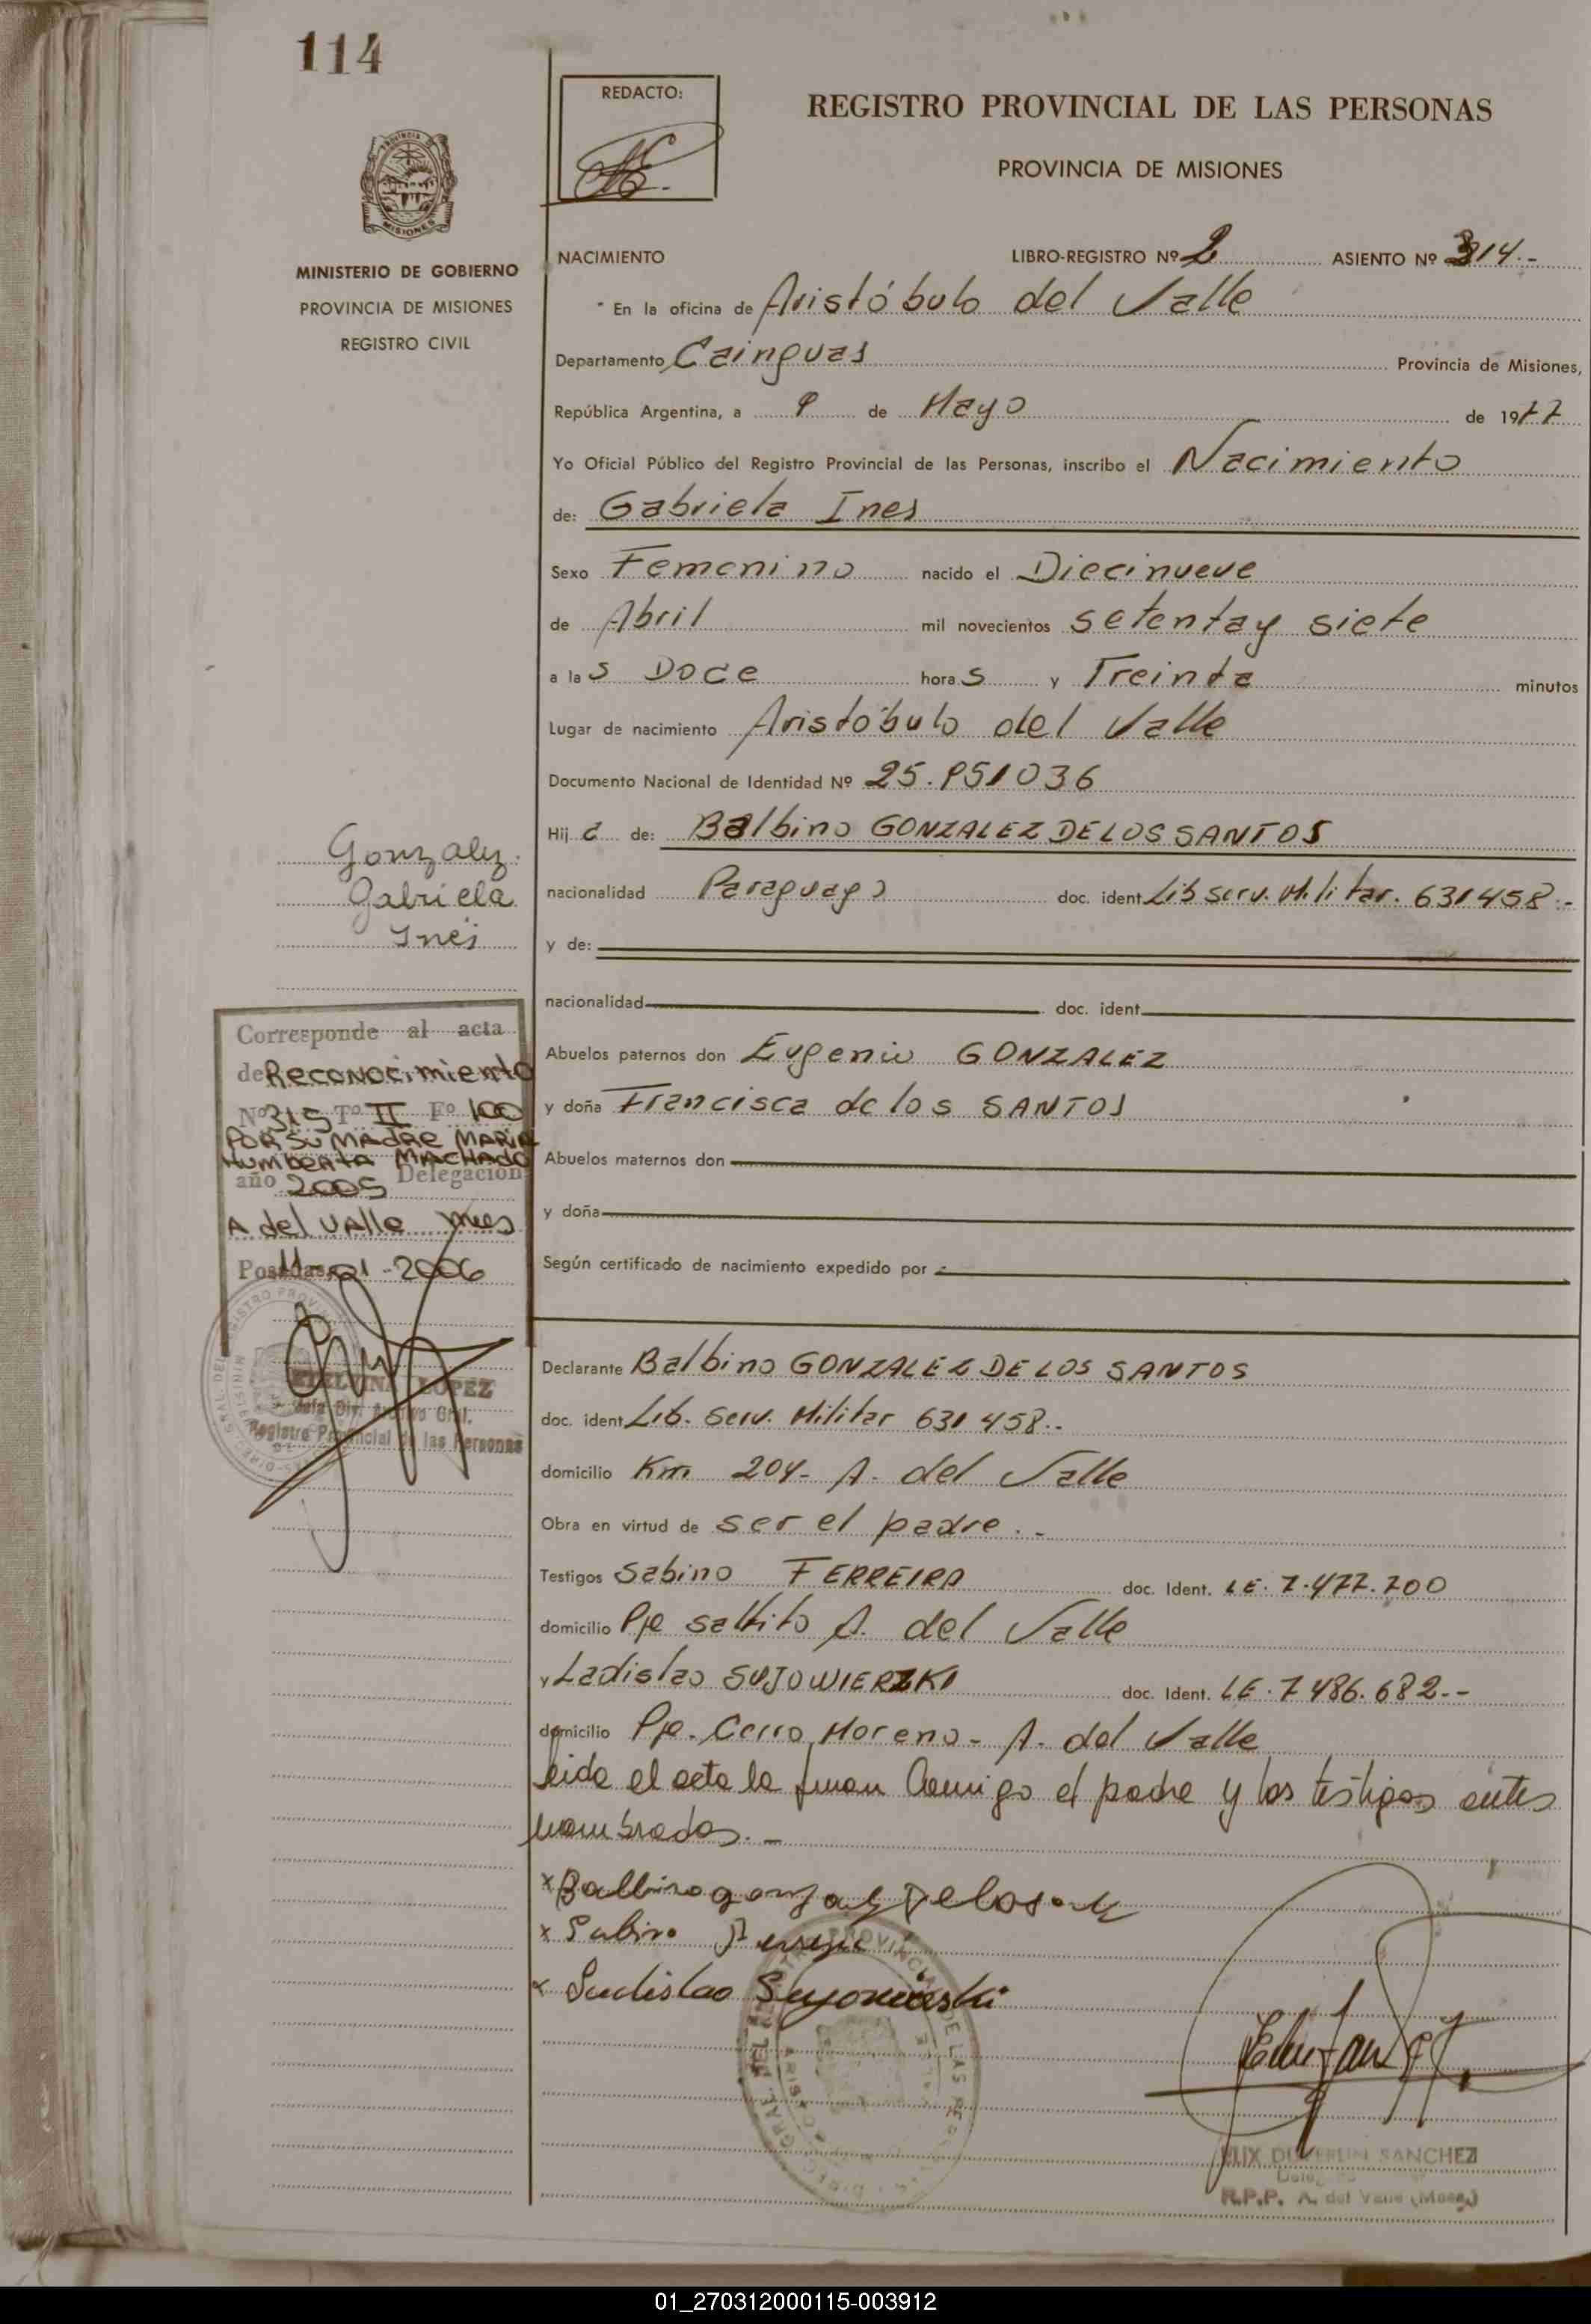 114
REDACTO:
REGISTRO PROVINCIAL DE LAS PERSONAS
PROVINCIA DE MISIONES
MINISTERIO DE GOBIERNO
PROVINCIA DE MISIONES
REGISTRO CIVIL
NACIMIENTO LIBRO-REGISTRO Nº 2 ASIENTO Nº 314.-
En la oficina de Aristóbulo del Valle
Departamento Cainguas Provincia de Misiones,
República Argentina, a 9 de Mayo de 1977
Yo Oficial Público del Registro Provincial de las Personas, inscribo el Nacimiento
de: Gabriela Ines
Sexo Femenino nacido el Diecinueve
de Abril mil novecientos setenta y siete
a las Doce horas y Treinta minutos
Lugar de nacimiento Aristóbulo del Valle
Documento Nacional de Identidad Nº 25.951036
Hija de: Balbino GONZALEZ DE LOS SANTOS
nacionalidad Paraguayo doc. ident Lib serv. Militar. 631458.-
y de:
nacionalidad doc. ident.
Abuelos paternos don Eugenio GONZALEZ
y doña Francisca de los SANTOS
Abuelos maternos don
y doña
Según certificado de nacimiento expedido por
Gonzalez
Gabriela
Ines
Corresponde al acta
de Reconocimiento
Nº 315 Tº II Fº 100
POR SU MADRE MARIA
HUMBERTA MACHADO
año 2005 Delegación
A del Valle Mnes
Posadas 11-01-2006
LOPEZ
Jefe Div. Archivo Gral.
Registro Provincial de las Personas
Declarante Balbino GONZALEZ DE LOS SANTOS
doc. ident Lib. Serv. Militar 631458..
domicilio Km 204- A. del Valle
Obra en virtud de ser el padre.-
Testigos Sabino FERREIRA doc. Ident. LE. 7.477.700
domicilio Pje saltito A. del Valle
y Ladislao SUJOWIERZKI doc. Ident. LE. 7486.682.--
domicilio Pje. Cerro Moreno- A. del Valle
leida el acta la firman conmigo el padre y los testigos antes
nombrados.-
x Balbino gonzalez Delosant
x Sabino
x Ladislao Sujowierski
SANCHEZ
R.P.P. A. del Valle (Mnes.)
01_270312000115-003912